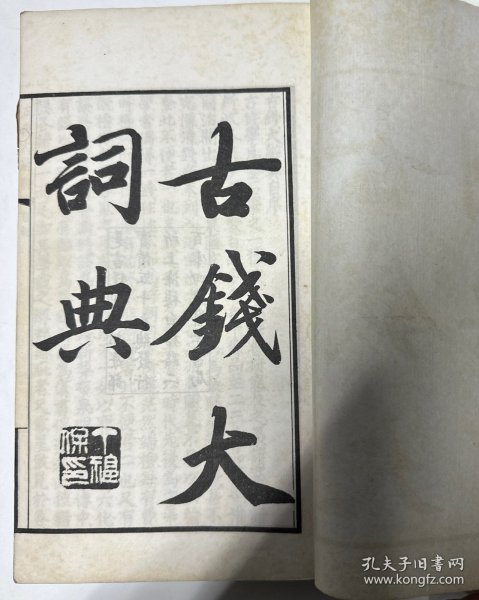 古錢大
詞典
丁福
保印
孔夫子旧书网
www.kongfz.com